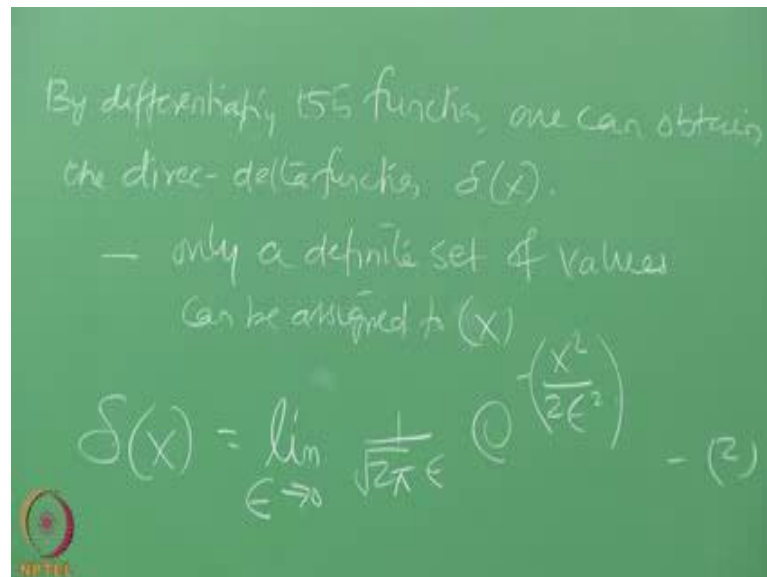 By differentiating this function, one can obtain
the direc-delta function δ(x).
— only a definite set of values
can be assigned to (x)
δ(x) = lim ε→0 1/√2π ε e^-(x²/2ε²) - (2)
NPTEL